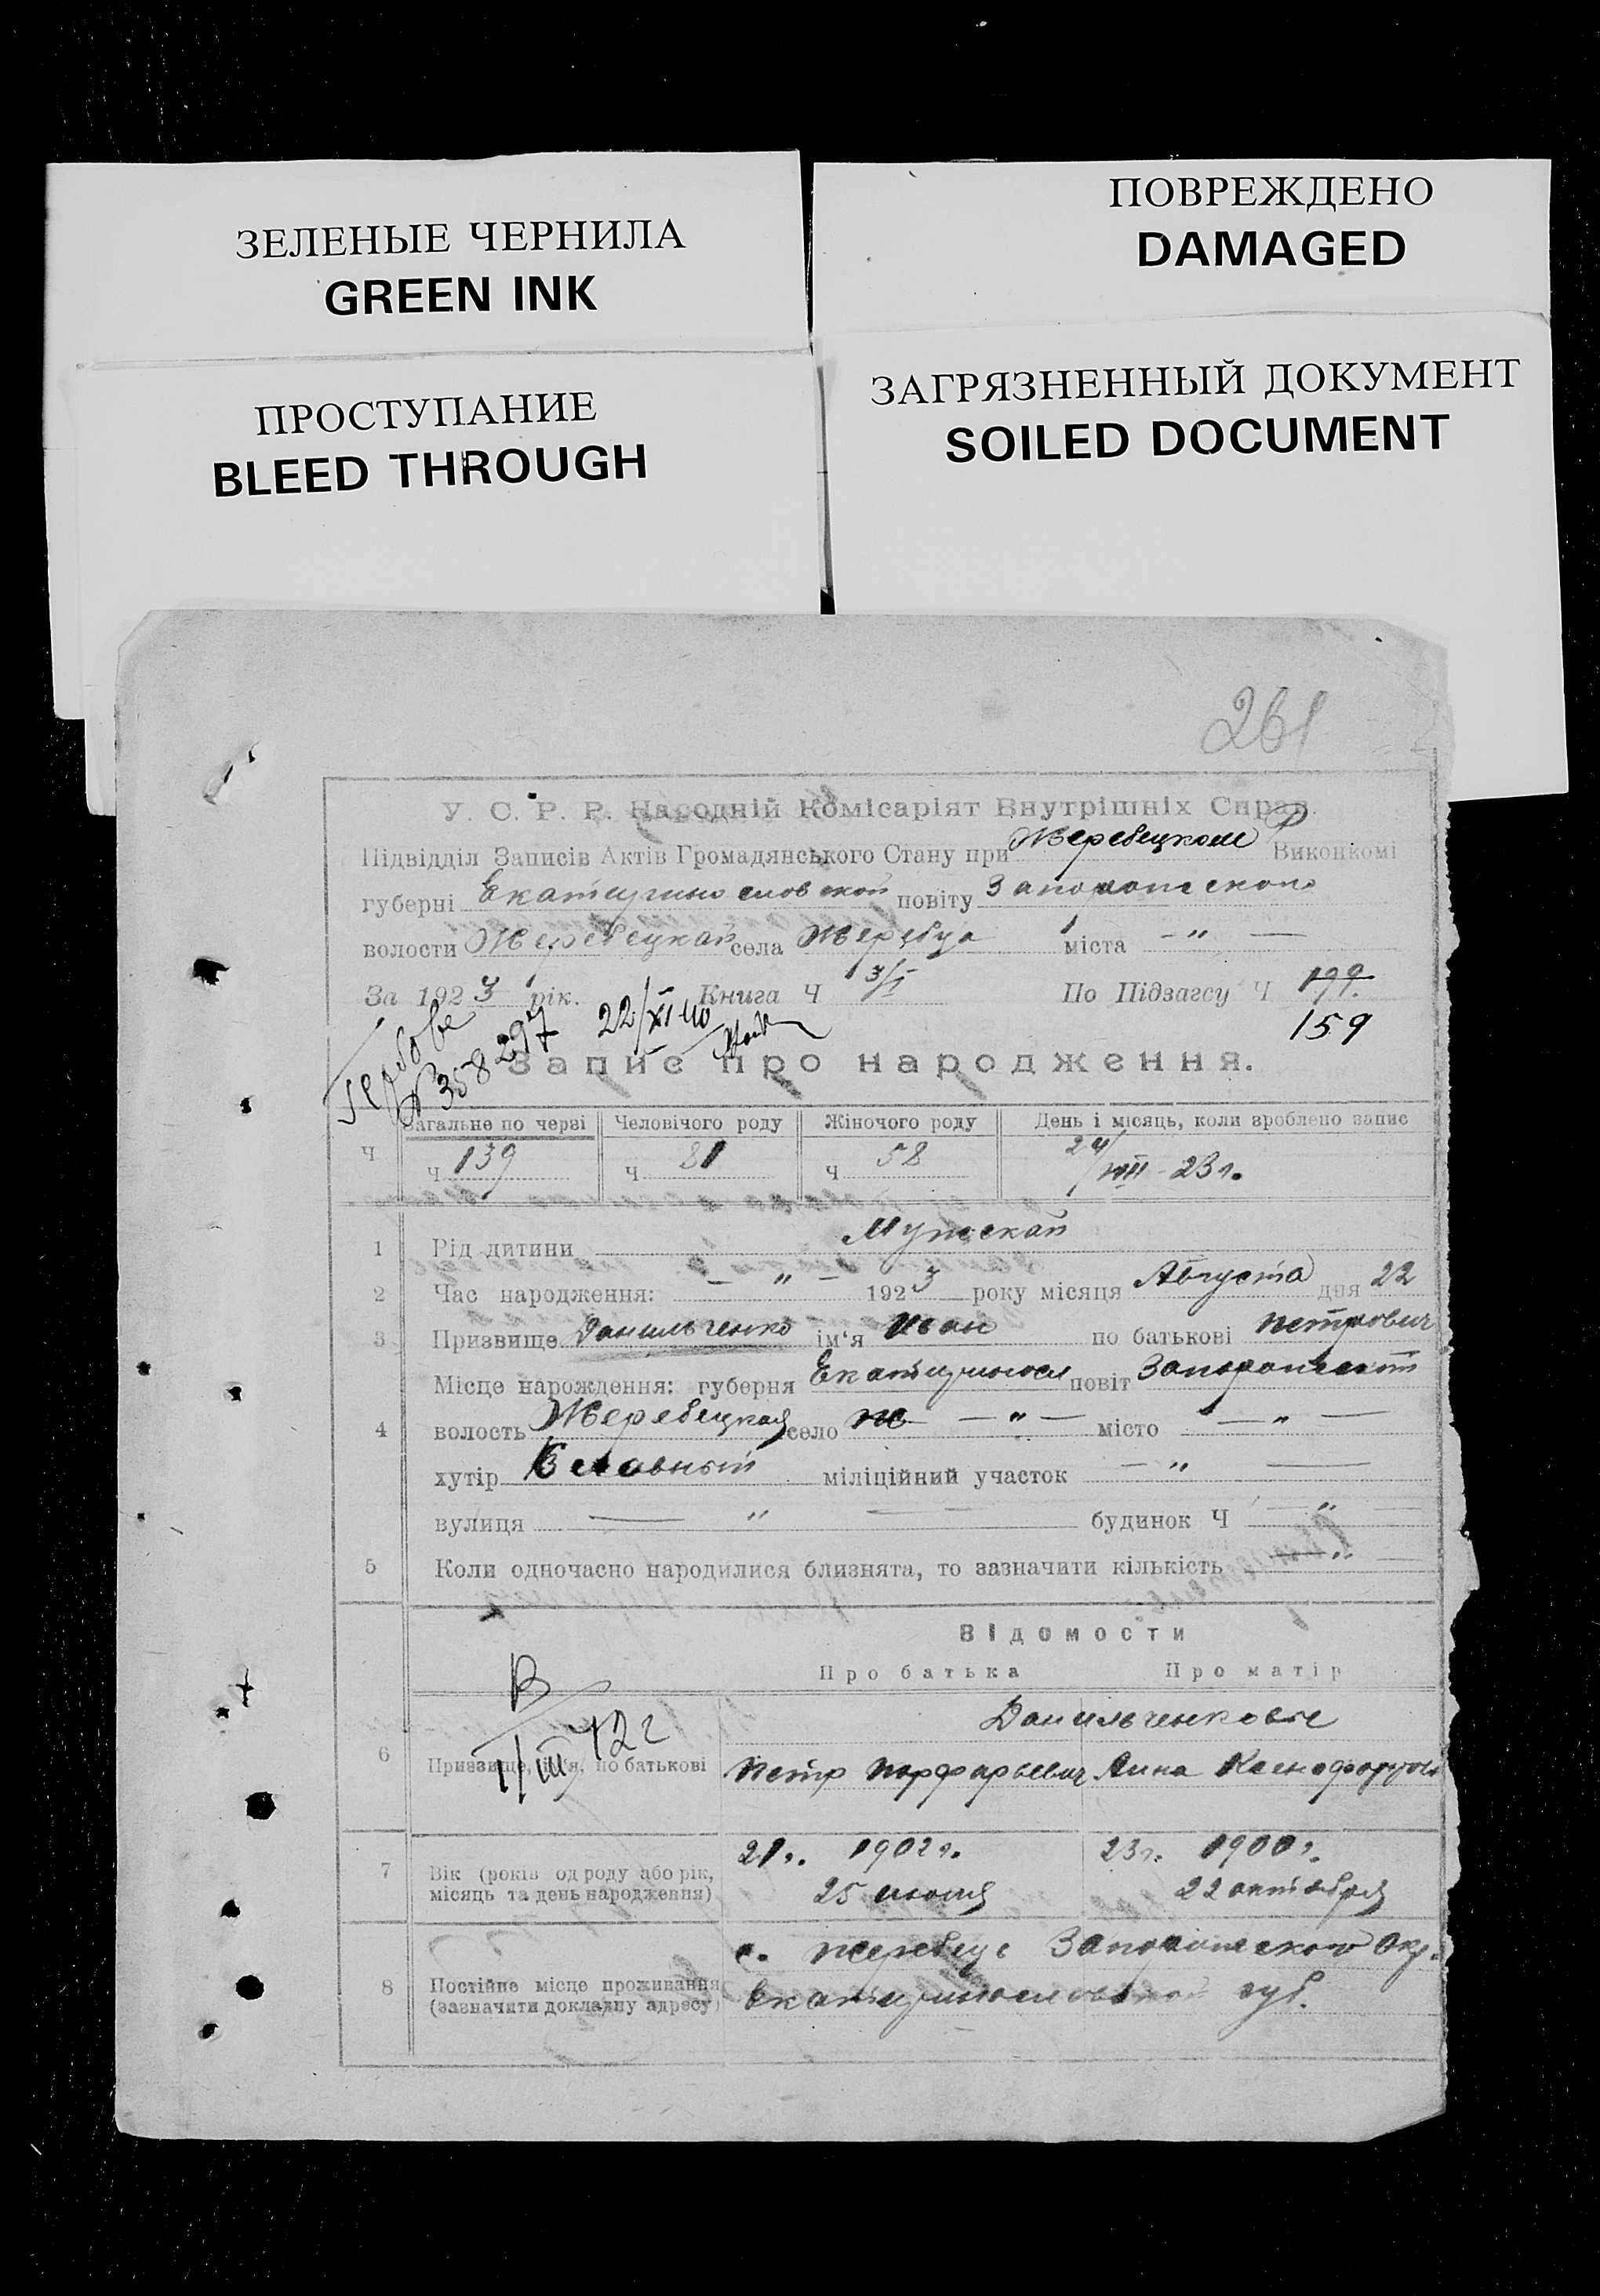 ЗЕЛЕНЫЕ ЧЕРНИЛА
GREEN INK
ПРОСТУПАНИЕ
BLEED THROUGH
ПОВРЕЖДЕНО
DAMAGED
ЗАГРЯЗНЕННЫЙ ДОКУМЕНТ
SOILED DOCUMENT
261
У. С. Р. Р. Народній Комісаріят Внутрішніх Справ.
Підвідділ Записів Актів Громадянського Стану при Жеребецком Р Виконкомі
губерні Екатеринославской повіту Запорожского
волости Жеребецкой села Жеребца міста — " —
За 1923 рік. Книга Ч 3/I По Підзагсу Ч 199.
159
№ 358297 22/XI-40
Запис про народження.
Ч Загальне по черзі Человічого роду Жіночого роду День і місяць, коли зроблено запис
Ч 139 Ч 81 Ч 58 24/VIII-23 г.
1 Рід дитини Мужской
2 Час народження: — " — 1923 року місяця Августа дня 22
3 Призвище Данильченко ім'я Иван по батькові Петрович
4 Місце нарождення: губерня Екатериносл повіт Запорожский
волость Жеребецкая село — " — місто — " —
хутір міліційний участок — " —
вулиця — " — будинок Ч — " —
5 Коли одночасно народилися близнята, то зазначити кількість — " —
Відомости
Про батька Про матір
В
1/III 42 г
Данильченковы
6 Призвище, ім'я, по батькові Петр Порфирьевич Анна Ксенофонтов
7 Вік (років од роду або рік, місяць та день народження) 21 г. 1902 г. 23 г. 1900 г.
25 июня 22 октября
8 Постійне місце проживання (зазначити докладну адресу) с. Жеребец Запорожского Окр.
Екатеринославской губ.